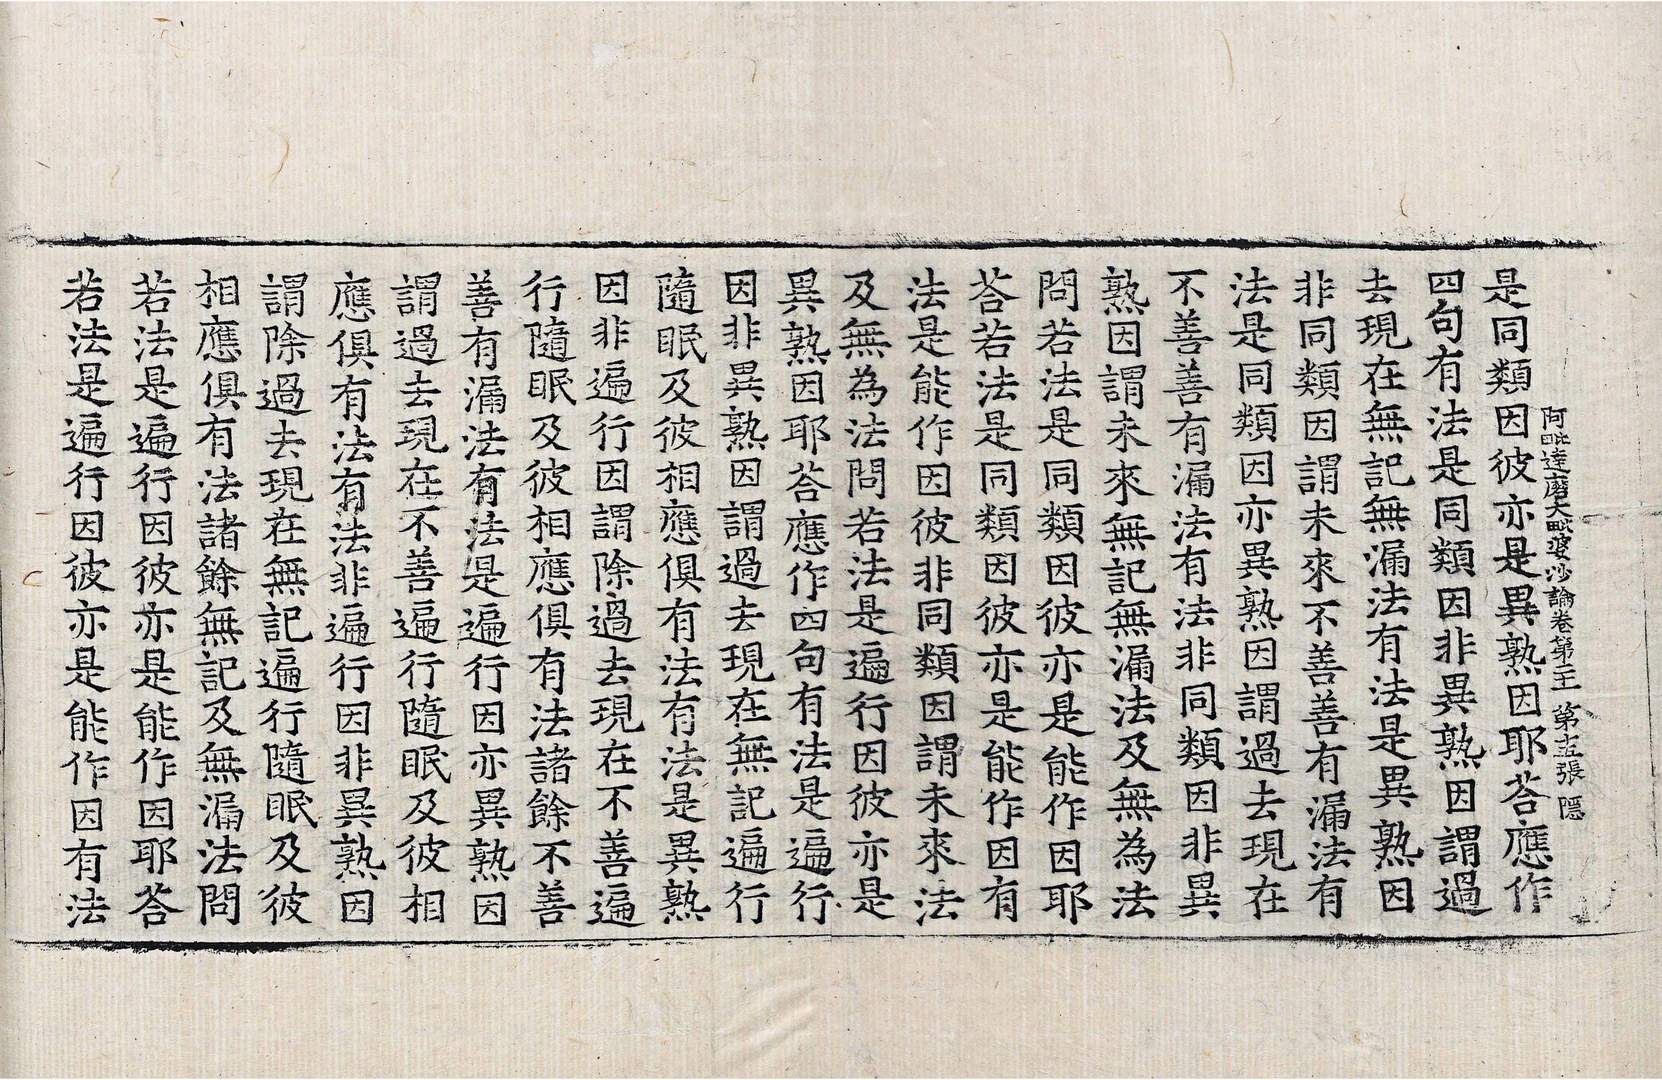 阿毗達磨大毗婆沙論卷第二十一 第十五張 隱
是同類因彼亦是異熟因耶荅應作
四句有法是同類因非異熟因謂過
去現在無記無漏法有法是異熟因
非同類因謂未來不善善有漏法有
法是同類因亦異熟因謂過去現在
不善善有漏法有法非同類因非異
熟因謂未來無記無漏法及無為法
問若法是同類因彼亦是能作因耶
荅若法是同類因彼亦是能作因有
法是能作因彼非同類因謂未來法
及無為法問若法是遍行因彼亦是
異熟因耶荅應作四句有法是遍行
因非異熟因謂過去現在無記遍行
隨眠及彼相應俱有法有法是異熟
因非遍行因謂除過去現在不善遍
行隨眠及彼相應俱有法諸餘不善
善有漏法有法是遍行因亦異熟因
謂過去現在不善遍行隨眠及彼相
應俱有法有法非遍行因非異熟因
謂除過去現在無記遍行隨眠及彼
相應俱有法諸餘無記及無漏法問
若法是遍行因彼亦是能作因耶荅
若法是遍行因彼亦是能作因有法